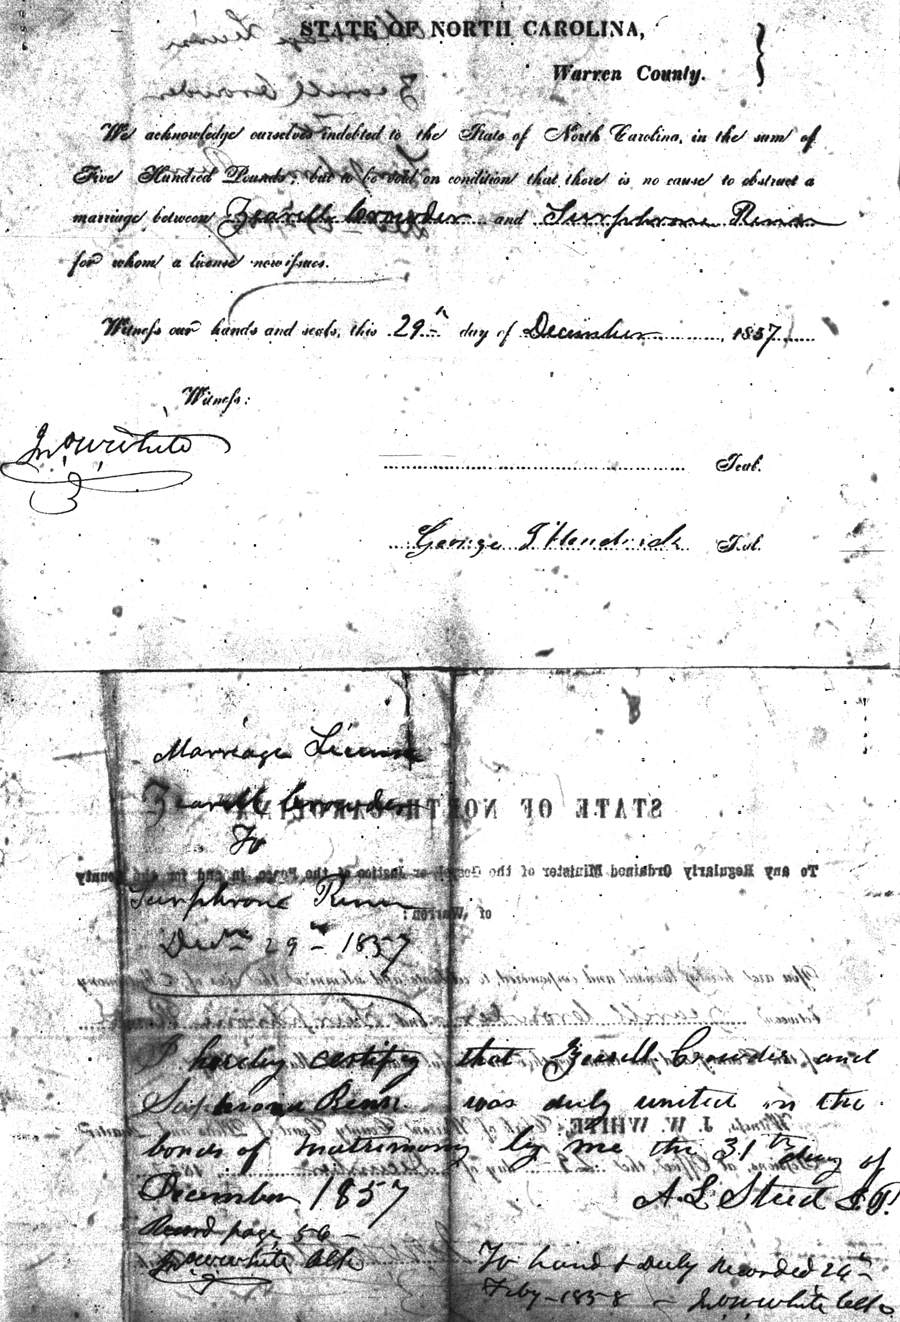 STATE OF NORTH CAROLINA,
Warren County.
We acknowledge ourselves indebted to the State of North Carolina, in the sum of
Five Hundred Pounds; but to be void on condition that there is no cause to obstruct a
marriage between Zearell Crowder and Surphrone Renn
for whom a license now issues.
Witness our hands and seals, this 29th day of December, 1857
Witness:
Jno W White
Seal.
George Hendrick Seal.
Marriage License
Zearell Crowder
To
Surphrone Renn
Decm 29th 1857
STATE OF NORTH CAROLINA
To any Regularly Ordained Minister of the Gospel, or Justice of the Peace, in and for the County
of Warren:
I hereby certify that Zearell Crowder and
Saphrona Renn was duly united in the
bonds of matrimony by me the 31th day of
December 1857 A L Steed J.P.
Record page 56
Jno W White Clk
To hand & duly recorded 24th
Feby 1858 Jno W White Clk